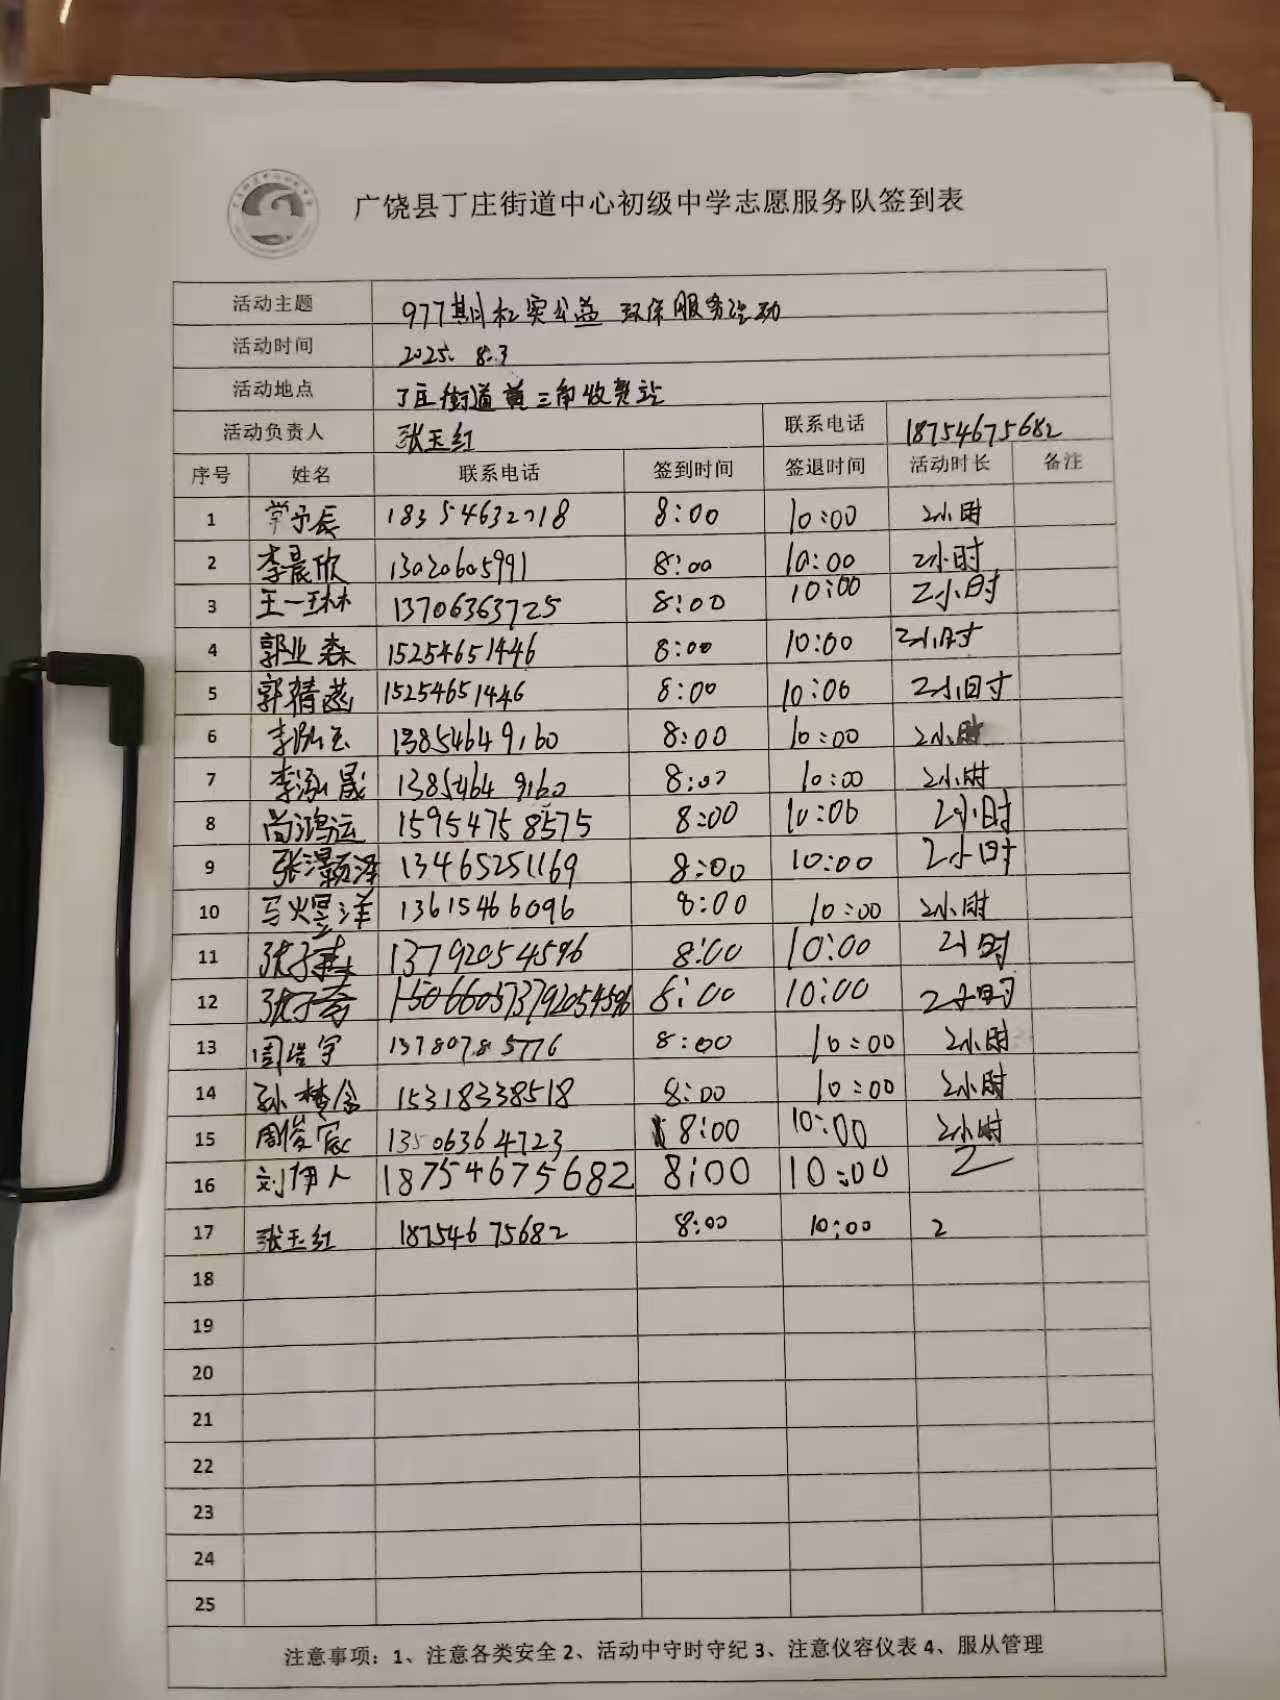 广饶县丁庄街道中心初级中学志愿服务队签到表
活动主题 977期红实公益 环保服务活动
活动时间 2025. 8.3
活动地点 丁庄街道黄三角收费站
活动负责人 张玉红 联系电话 18754675682
序号 姓名 联系电话 签到时间 签退时间 活动时长 备注
1 8:00 10:00 2小时
2 李晨欣 13020605991 8:00 10:00 2小时
3 王一琳 13706363725 8:00 10:00 2小时
4 郭业森 15254651446 8:00 10:00 2小时
5 郭精菡 15254651446 8:00 10:00 2小时
6 13854649160 8:00 10:00 2小时
7 李泓晟 13854649160 8:00 10:00 2小时
8 尚鸿运 15954758575 8:00 10:00 2小时
9 13465251169 8:00 10:00 2小时
10 马煜洋 13615466096 8:00 10:00 2小时
11 13792054596 8:00 10:00 2小时
12 8:00 10:00 2小时
13 周浩宇 13780785776 8:00 10:00 2小时
14 孙梦含 15318338518 8:00 10:00 2小时
15 周俊宸 13506364723 8:00 10:00 2小时
16 刘伊人 18754675682 8:00 10:00 2
17 张玉红 18754675682 8:00 10:00 2
18
19
20
21
22
23
24
25
注意事项：1、注意各类安全 2、活动中守时守纪 3、注意仪容仪表 4、服从管理